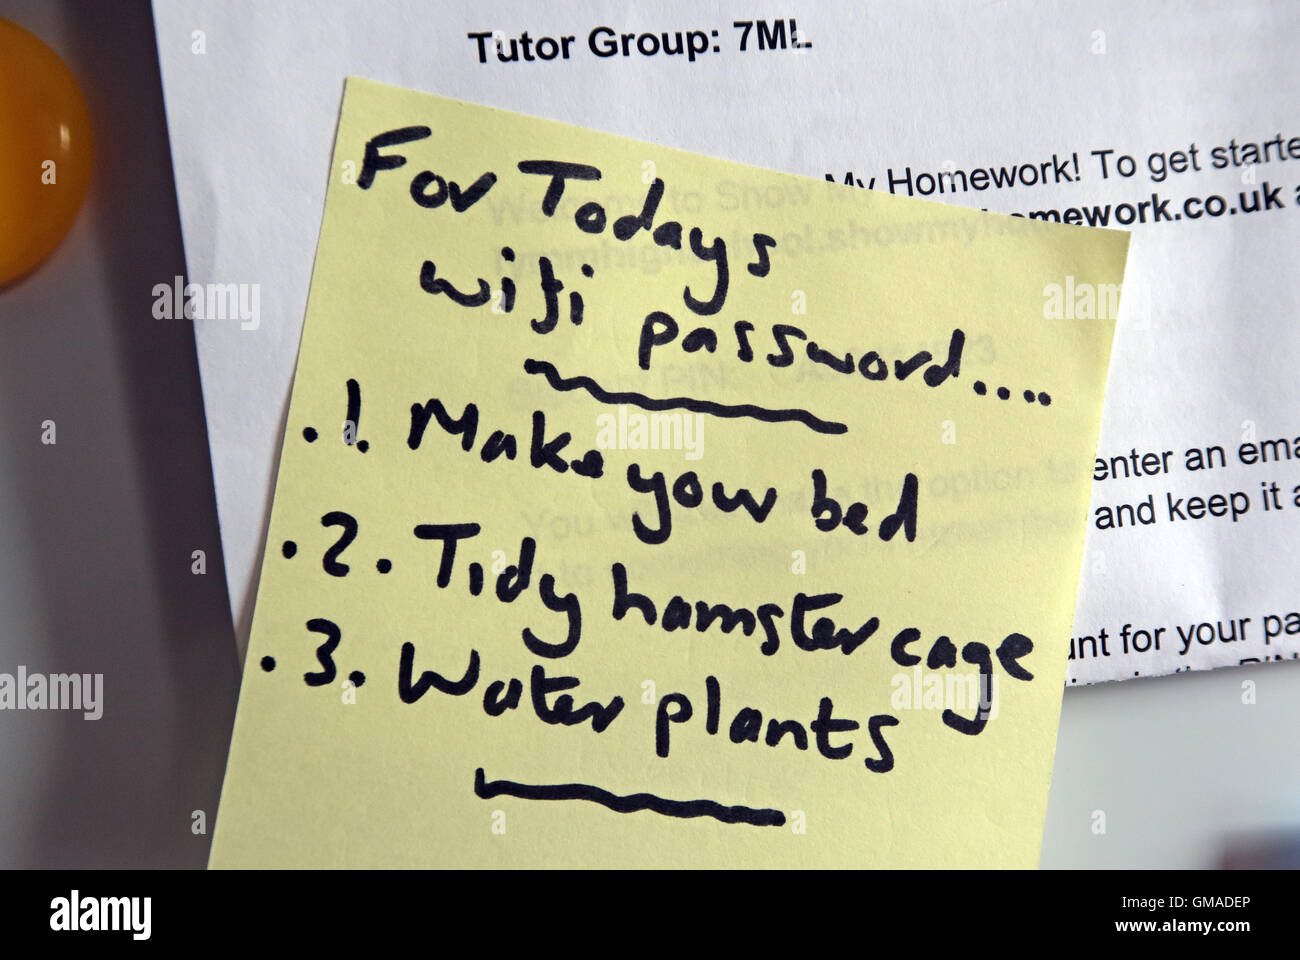 Tutor Group: 7ML
My Homework! To get starte
homework.co.uk a
For Todays
wifi password....
.1. Make your bed
.2. Tidy hamster cage
.3. Water plants
enter an ema
and keep it a
unt for your pa
alamy
alamy stock photo
GMADEP
www.alamy.com